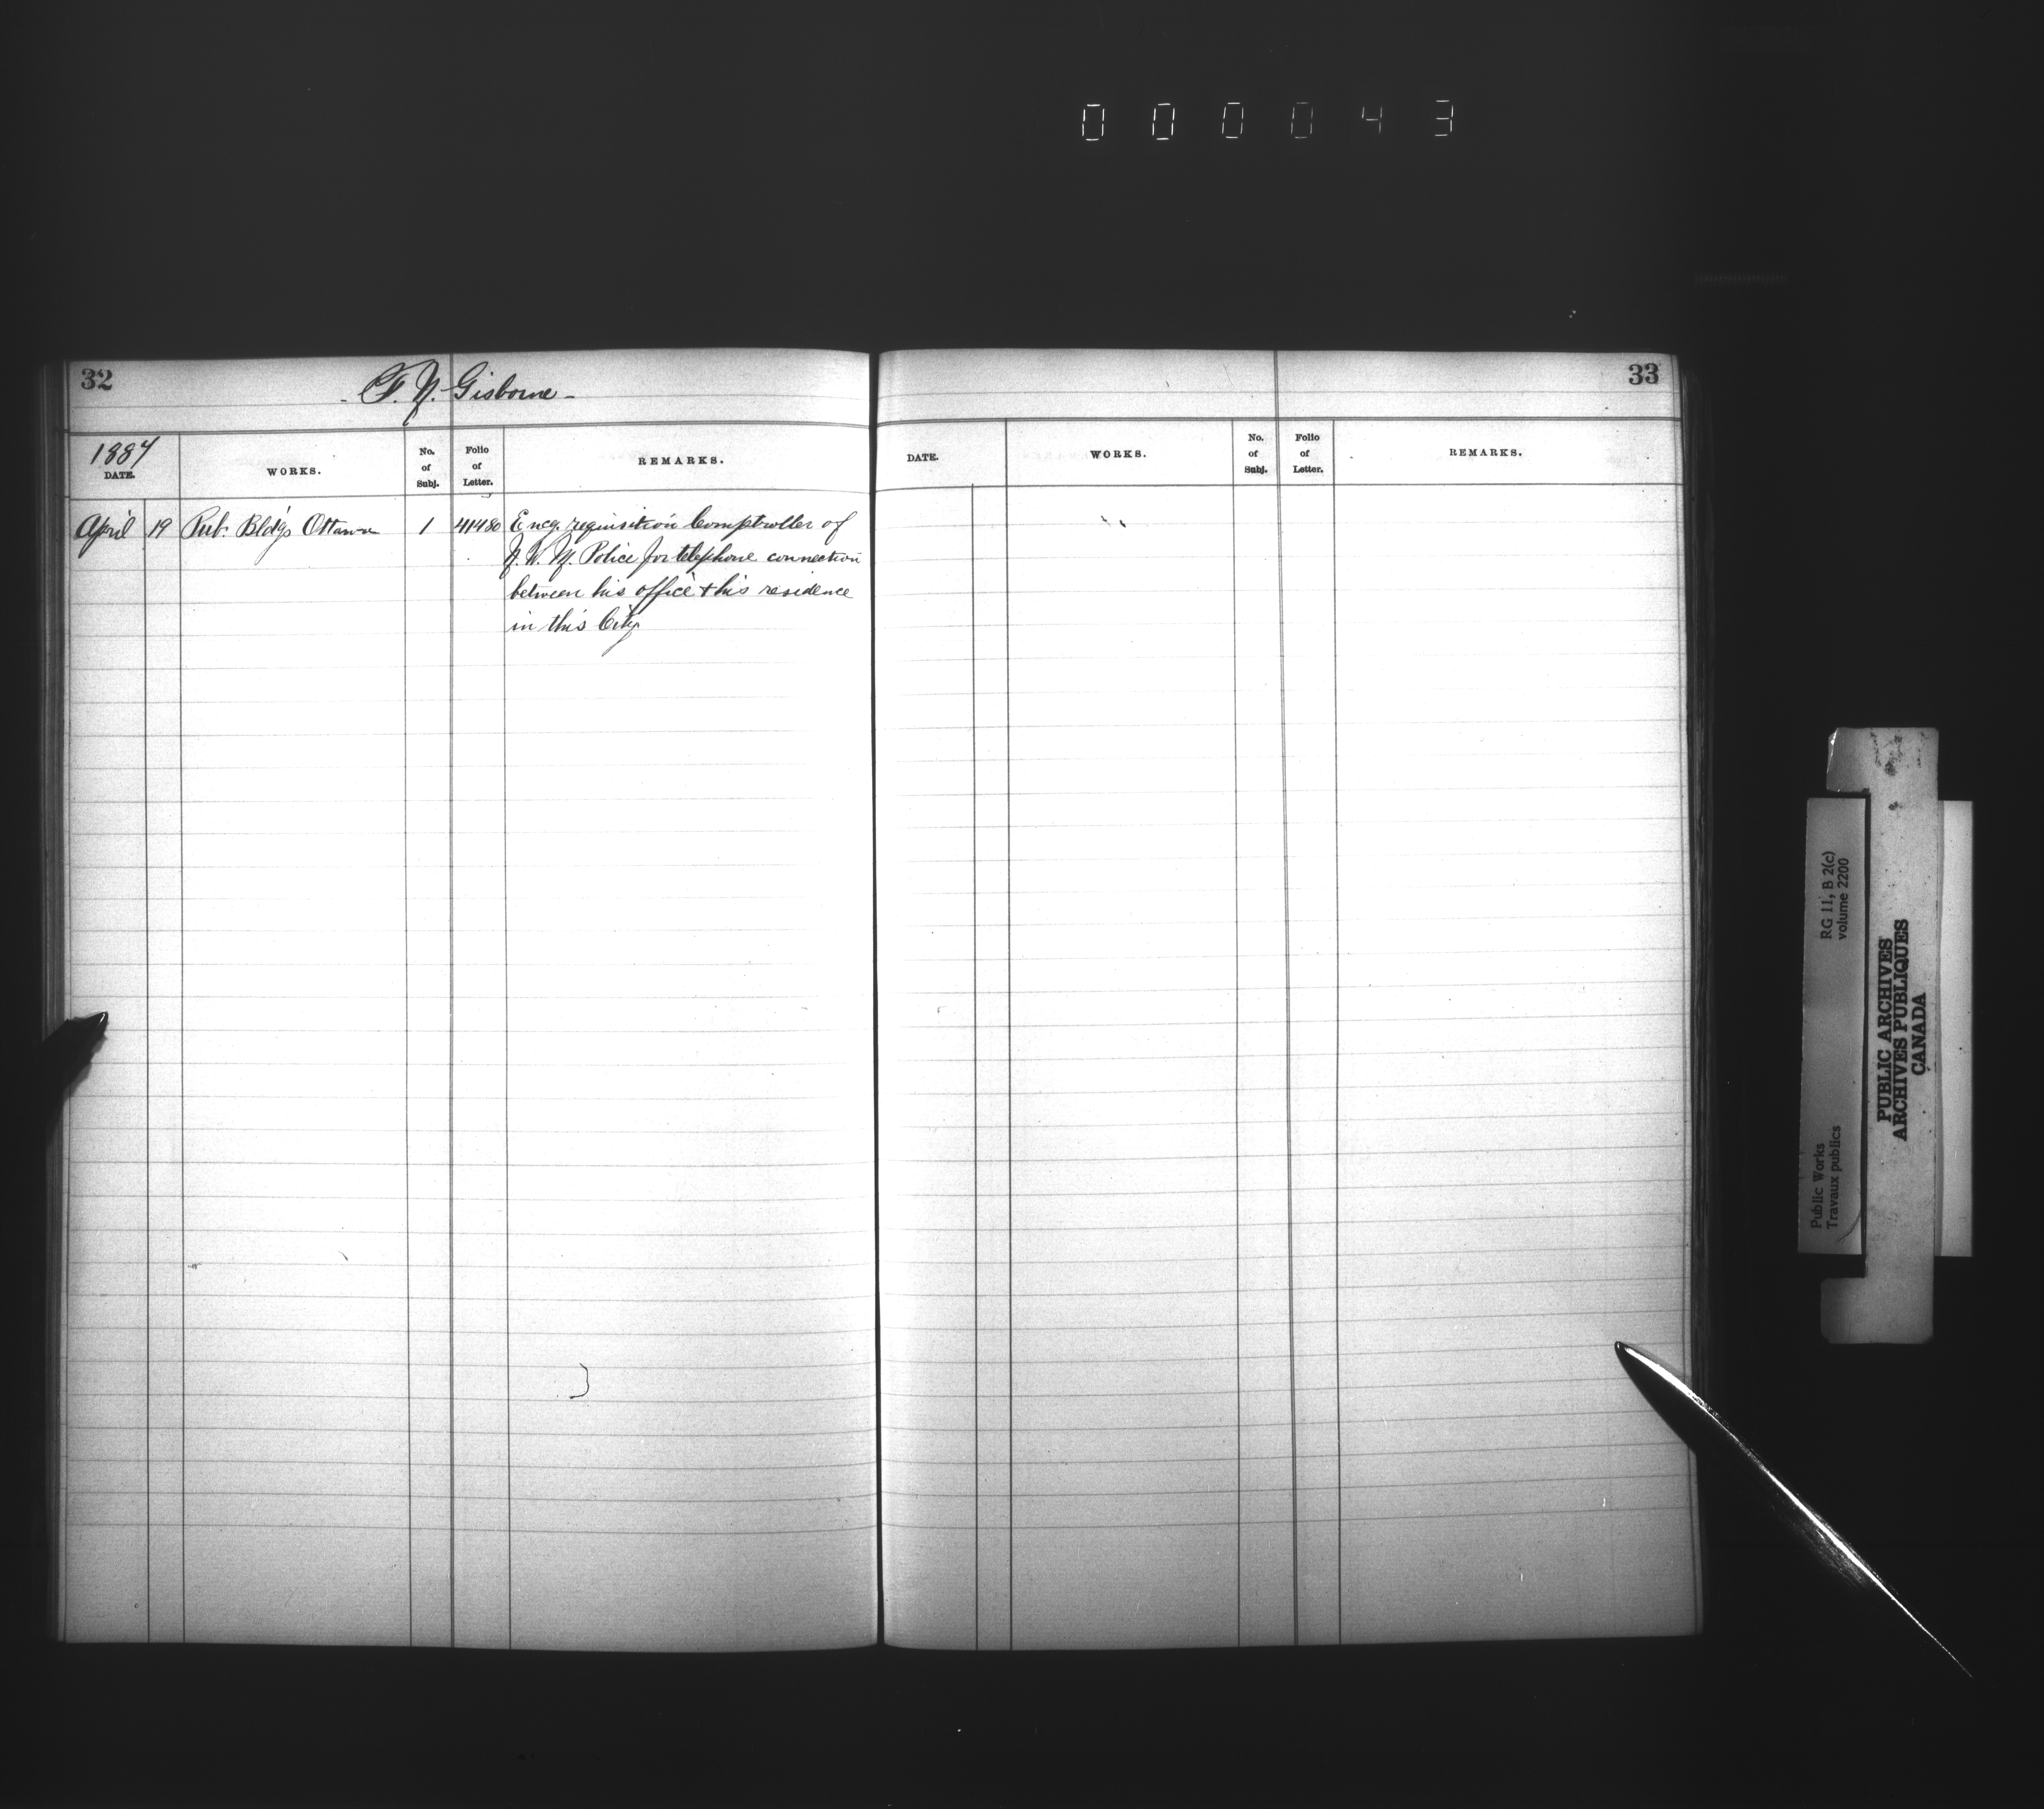 000043
32
- F. N. Gisborne -
1884
DATE. WORKS. No. of Subj. Folio of Letter. REMARKS.
April 19 Pub. Bldgs Ottawa 1 41480 Encg. requisition Comptroller of
N. W. M. Police for telephone connection
between his office & his residence
in this City
33
DATE. WORKS. No. of Subj. Folio of Letter. REMARKS.
RG 11, B 2(c)
volume 2200
Public Works
Travaux publics
PUBLIC ARCHIVES
ARCHIVES PUBLIQUES
CANADA